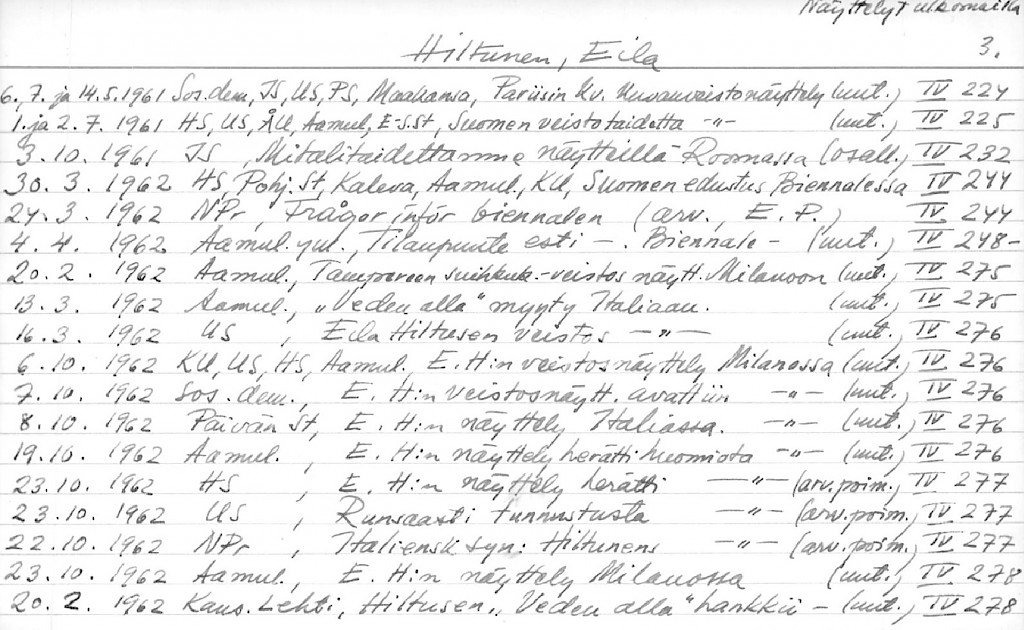 Näyttelyt ulkomailla
Hiltunen, Eila 3.
6. 7. ja 14.5.1961 Sos.dem, IS, US, PS, Maakansa, Pariisin kv. kuvanveistonäyttely (uut.) IV 224
1. ja 2. 7. 1961 HS, US, ÅU, Aamul, E-S.St, Suomen veistotaidetta -"- (uut.) IV 225
3. 10. 1961 IS, Mitalitaidettamme näytteillä Roomassa (osall.) IV 232
30. 3. 1962 HS, Pohj. St, Kaleva, Aamul., KU, Suomen edustus Biennalessa IV 244
24. 3. 1962 NPr, Frågor inför biennalen (arv., E. P.) IV 244
4. 4. 1962 Aamul. ym., Tilanpuute esti -. Biennale - (uut.) IV 248-
20. 2. 1962 Aamul., Tampereen suihkuk.-veistos näytt. Milanoon (uut.) IV 275
13. 3. 1962 Aamul., „Veden alla" myyty Italiaan. (uut.) IV 275
16.3. 1962 US, Eila Hiltusen veistos -"- (uut.) IV 276
6.10. 1962 KU, US, HS, Aamul., E. H:n veistosnäyttely Milanossa (uut.) IV 276
7.10. 1962 Sos. dem., E. H:n veistosnäytt. avattiin -"- (uut.) IV 276
8.10. 1962 Päivän St, E. H:n näyttely Italiassa. -"- (uut.) IV 276
19.10. 1962 Aamul., E. H:n näyttely herätti huomiota -"- (uut.) IV 276
23.10. 1962 HS, E. H:n näyttely herätti -"- (arv.poim.) IV 277
23.10. 1962 US, Runsaasti tunnustusta -"- (arv.poim.) IV 277
22.10. 1962 NPr, Italiensk syn: Hiltunens -"- (arv.poim.) IV 277
23.10. 1962 Aamul., E. H:n näyttely Milanossa (uut.) IV 278
20. 2. 1962 Kans. Lehti, Hiltusen „Veden alla" hankkii - (uut.) IV 278